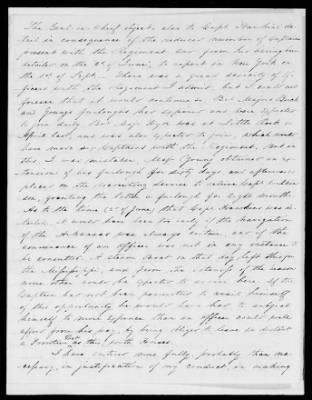 The General in Chief objects also to Capt Hawkins' de-
tail in consequence of the reduced number of Captains
present with the Regiment, and from his having been
detailed on the 2d of June, to report in New York on
the 1st of Sept. There was a great scarcity of of-
ficers with the Regiment I admit, but I could not
foresee that it would continue so. Bvt Major Birch
and Young's furloughs had expired and were expected
to on duty
April last, and was also expected to join, which would
have made six Captains with the Regiment, but in
this I was mistaken, Major Young obtained an ex-
tension of his furlough for sixty days and afterwards
placed on the recruiting service to relieve Capt
granting the latter a furlough for eight months.
As to the time (2d of June) that Capt Hawkins was de-
tailed, it would have been too early if the navigation
of the Arkansas was always certain, and if the
convenience of an officer was not in any instance to
be consulted. A steam Boat on that day left this for
the Mississippi, and from the lateness of the season
none other could be expected to arrive here. If the
Captain had not been permitted to avail himself
of this opportunity he would have had to subject
himself to more expense than an officer could well
afford from his pay, by being obliged to leave so distant
a Frontier Post as this, with Horses.
I have entered more fully, probably than ne-
cessary, in justification of my conduct, in making